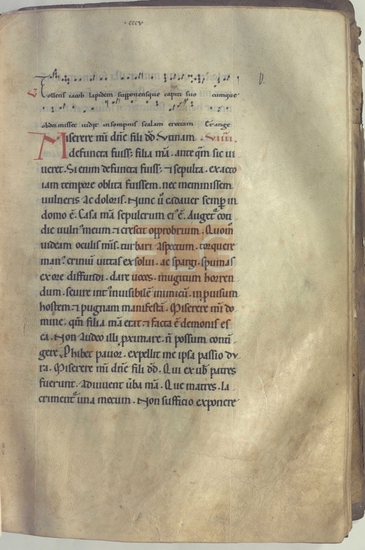 Tollens iacob lapidem supponensque capiti suo cumque
dormisset vidit in sompnis scalam erectam
Miserere mī dñe fili dd. Utinam
defuncta fuiss; filia mā. ante qm̄ sic ui
ueret. Si enim defuncta fuiss; et sepulta. ex acto
iam tempore oblita fuissem. nec meminissem
uulneris ac doloris. Nunc ū cadauer semp in
domo ē. Casa mā sepulcrum ei ē. Auget coti
die uuln meum et crescit opprobrium. Quom̄
uideam oculis mīs turbari aspectum. torquere
man. crinū uittas exsolui. ac spargi. spumas
ex ore diffundi. dare uoces. mugitum horren
dum. seuire int inuisibilē inimicū.
hostem. et pugnam manifestā. Miserere mī do
mine. qm̄ filia mā erat et facta ē demonis es
ca. Non audeo illi pximare. n̄ possum contin
gere. Phibet pauor. expellit me ipsa passio du
ra. Miserere mī dñe fili dd. Qui ex ub patres
fuerunt. adiuuent uba mā. Que matres. la
criment una mecum. Non sufficio exponere